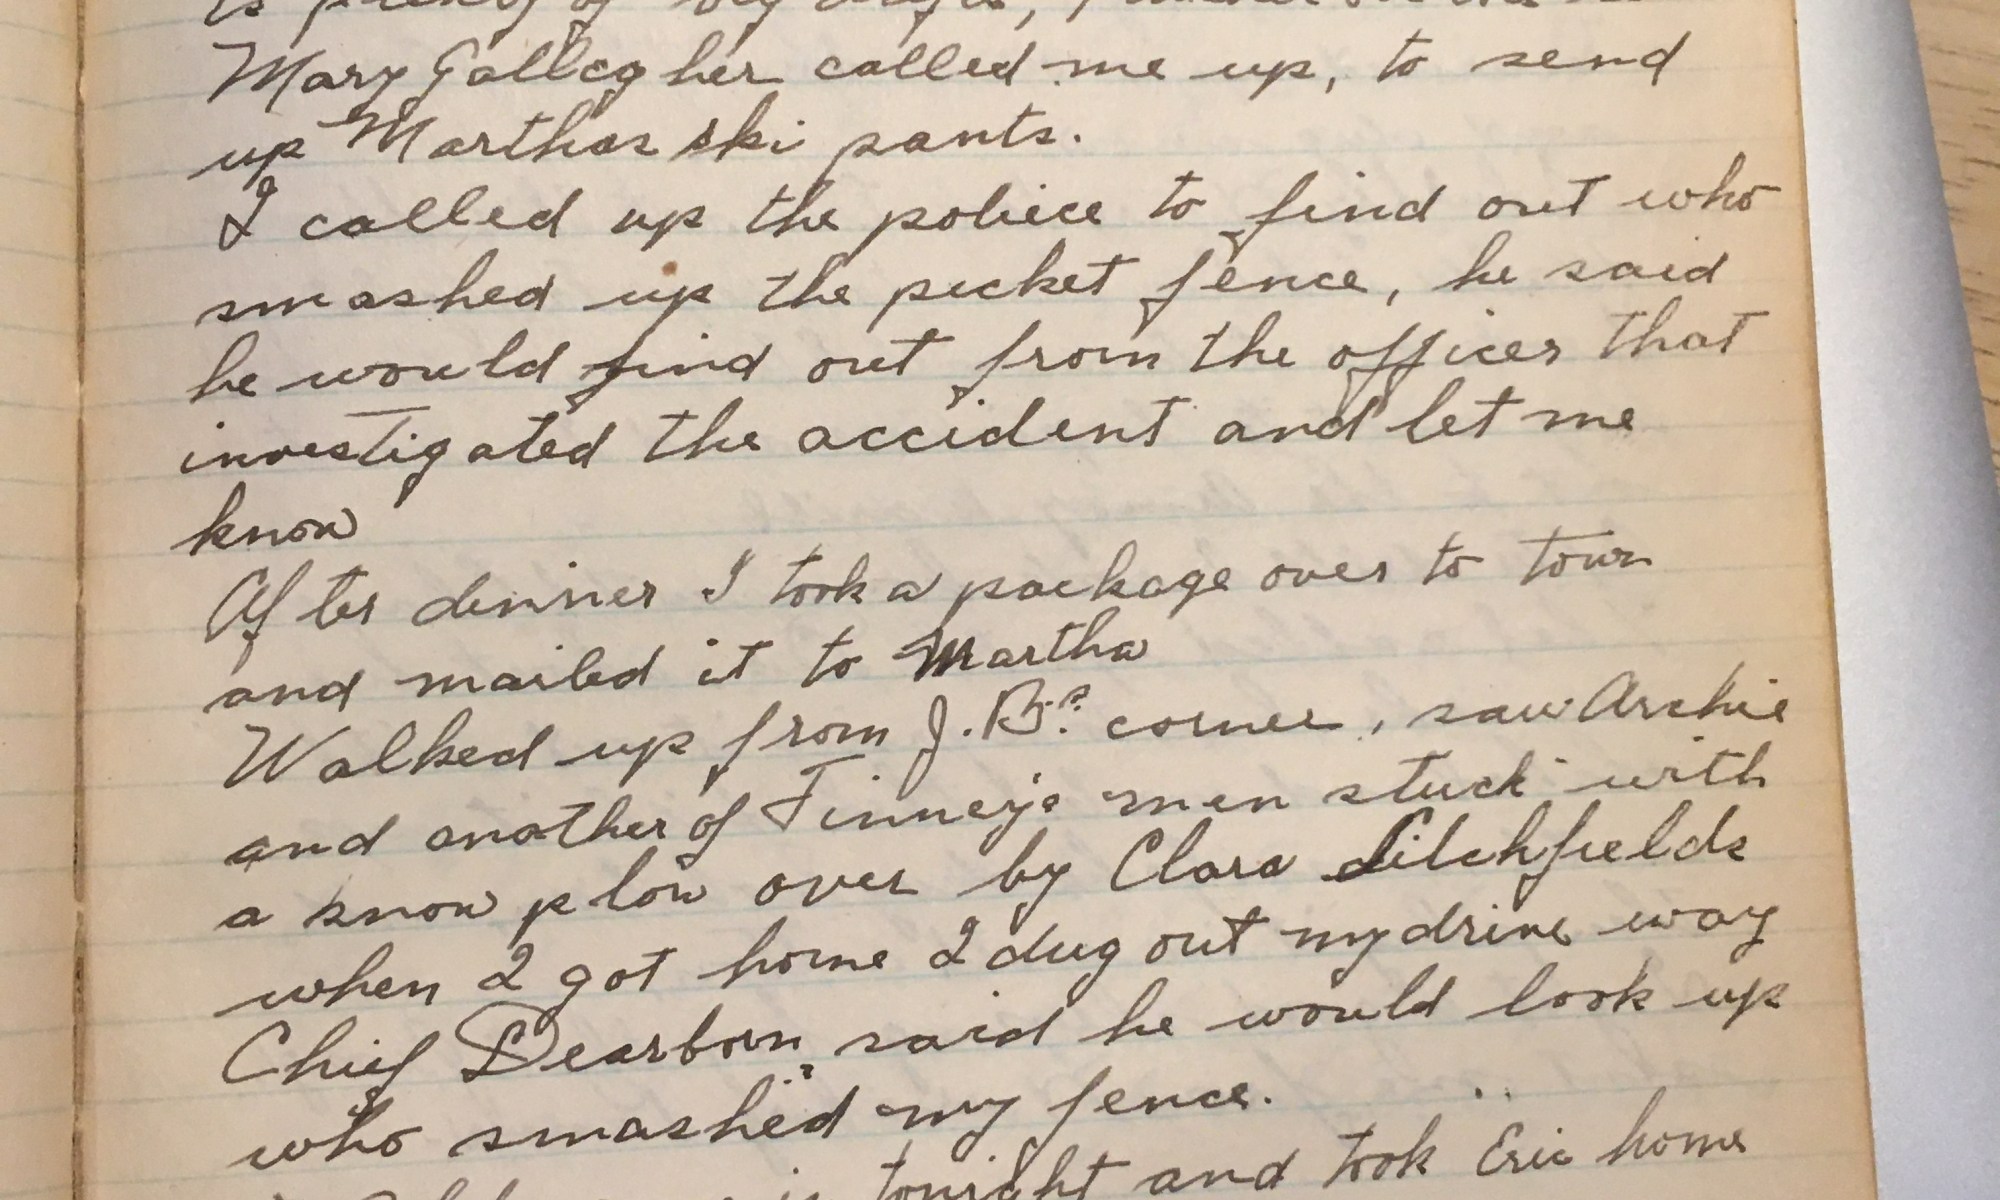 Mary Gallagher called me up, to send
up Marthas ski pants.
I called up the poliece to find out who
smashed up the picket fence, he said
he would find out from the officer that
investigated the accident and let me
know
After dinner I took a package over to town
and mailed it to Martha
Walked up from J.B.s corner, saw Archie
and another of Finney's men stuck with
a snow plow over by Clara Litchfields
when I got home I dug out my drive way
Chief Dearborn said he would look up
who smashed my fence.
tonight and took Eric home